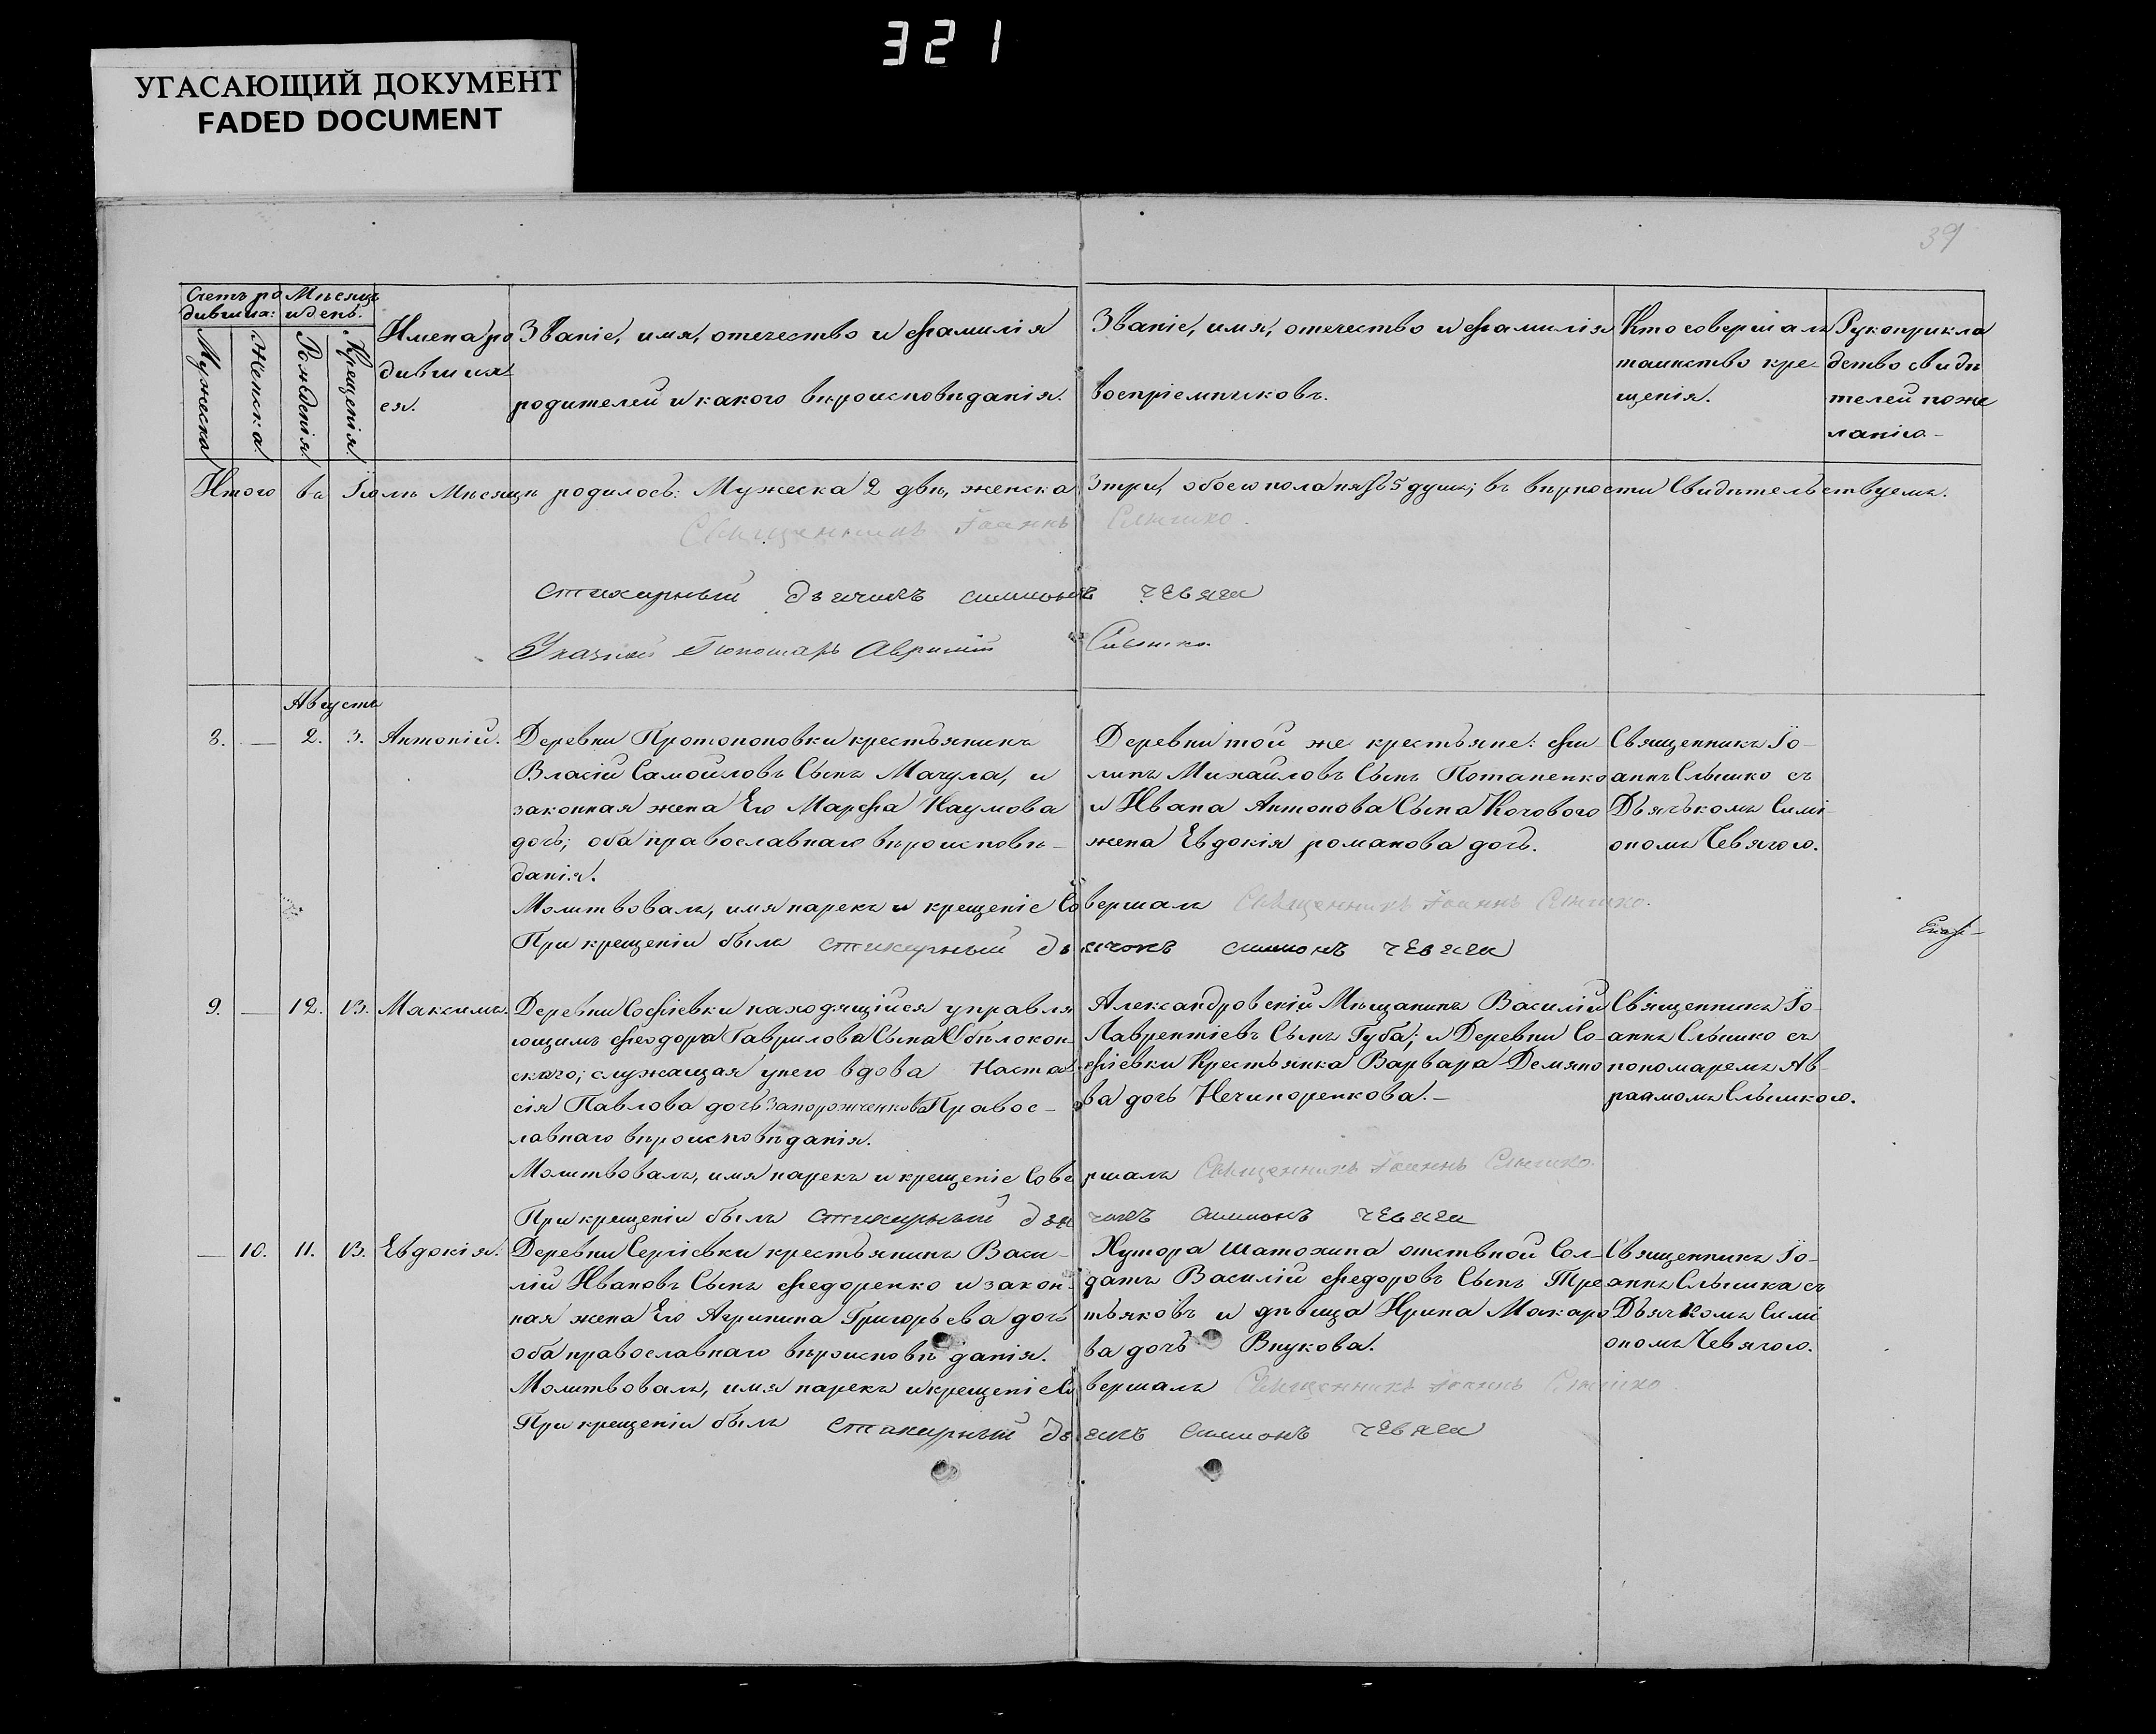 321
УГАСАЮЩИЙ ДОКУМЕНТ
FADED DOCUMENT
39
Счетъ ро
дивших:
Мѣсяцъ
и день.
Мужеска
Женска
Рожденія
Крещенія
Имена ро
дивших
ся.
Званіе, имя, отечество и фамилія
родителей и какого вѣроисповѣданія.
Званіе, имя, отечество и фамилія
воспріемниковъ.
Кто совершалъ
таинство кре-
щенія.
Рукоприкла
дство свидѣ
телей по же
ланію
Итого въ Іюлѣ Мѣсяцѣ родилось: Мужеска 2 двѣ, женска 3 три, обоего пола пять 5 душъ; въ вѣрности Свидѣтельствуемъ.
Священникъ Іоаннъ Слышко.
стихарный дьячокъ симионъ чевяга
Указной Пономарь Аврамій Слышко.
Августъ
8. — 2. 3. Антоній. Деревни Протопоповки крестьянинъ
Власій Самойловъ Сынъ Мачула, и
законная жена Его Марфа Наумова
дочь; оба православнаго вѣроисповѣ-
данія.
Деревни той же крестьяне: Фи
липъ Михайловъ Сынъ Потапенко
и Ивана Антонова Сына Кочового
жена Евдокія романова дочь.
Священникъ Іо-
аннъ Слышко съ
Дьячькомъ Симі-
ономъ Чевягою.
Молитвовалъ, имя нарекъ и крещеніе Совершалъ Священникъ Іоаннъ Слышко.
При крещеніи былъ стихарный дьячокъ симионъ чевяга
9. — 12. 13. Максимъ. Деревни Софіевки находящійся управля
ющимъ Феодора Гаврилова Сына Сбѣлокон-
скаго; служащая у него вдова Наста
сія Павлова дочь Запорожченкова Правос-
лавнаго вѣроисповѣданія.
Александровскій Мѣщанинъ Василій
Лаврентіевъ Сынъ Губа; и Деревни Со-
фіевки Крестьянка Варвара Демяно
ва дочь Нечипоренкова.—
Священникъ Іо-
аннъ Слышко съ
пономаремъ Ав-
раамомъ Слышкою.
Молитвовалъ, имя нарекъ и крещеніе Совершалъ Священникъ Іоаннъ Слышко.
При крещеніи былъ стихарный дьячокъ симионъ чевяга
— 10. 11. 13. Евдокія. Деревни Сергіевки крестьянинъ Васи-
лій Ивановъ Сынъ Федоренко и закон-
ная жена Его Агрипина Григорьева дочь
оба православнаго вѣроисповѣданія.
Хутора Шатохина отствной Сол-
датъ Василій Федоровъ Сынъ Тре
тьяковъ и дѣвица Ирина Макаро
ва дочь Внукова.
Священникъ Іо-
аннъ Слышка съ
Дьячкомъ Симі
ономъ Чевягою.
Молитвовалъ, имя нарекъ и крещеніе Совершалъ Священникъ Іоаннъ Слышко
При крещеніи былъ Стихарный дьячокъ симионъ чевяга